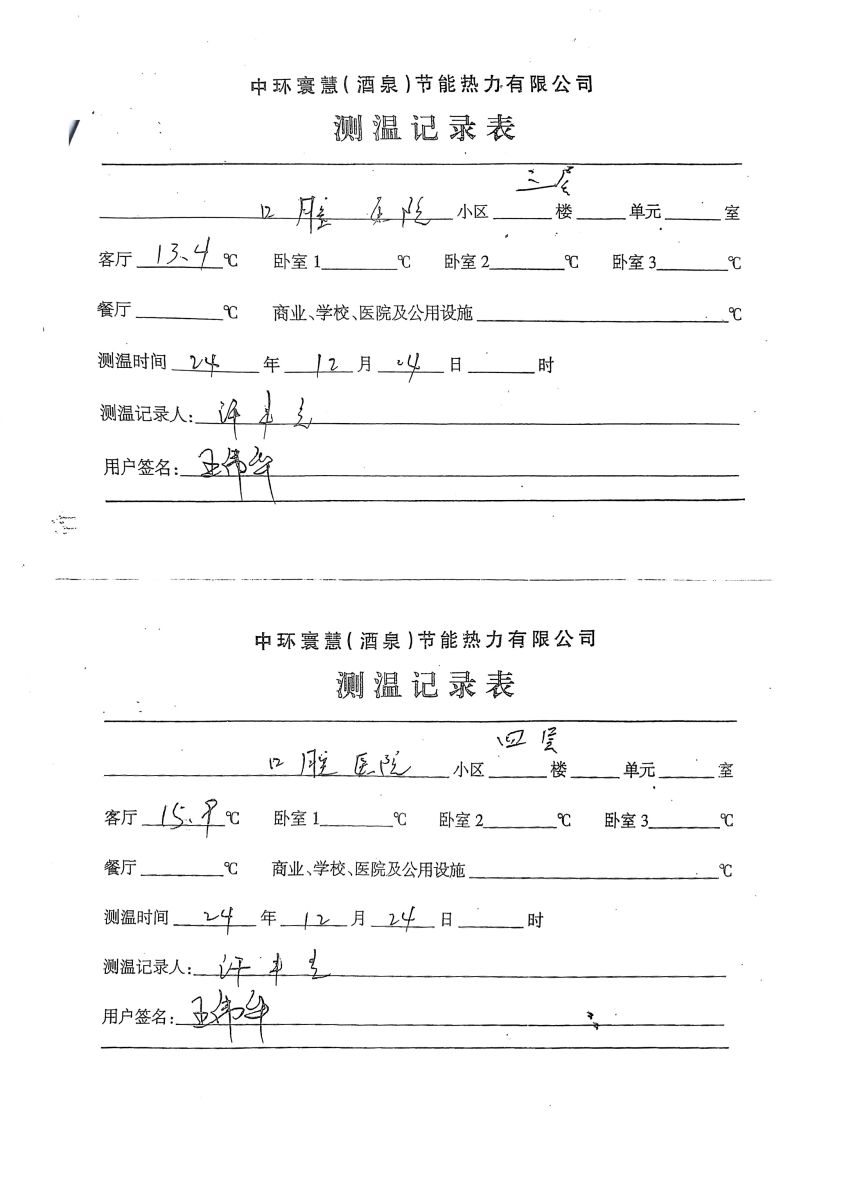 中环寰慧(酒泉)节能热力有限公司
测温记录表
三层
口腔医院 小区 楼 单元 室
客厅 13.4 ℃ 卧室1 ℃ 卧室2 ℃ 卧室3 ℃
餐厅 ℃ 商业、学校、医院及公用设施 ℃
测温时间 24 年 12 月 日 时
测温记录人: 许
用户签名: 王伟华
中环寰慧(酒泉)节能热力有限公司
测温记录表
四层
口腔医院 小区 楼 单元 室
客厅 ℃ 卧室1 ℃ 卧室2 ℃ 卧室3 ℃
餐厅 ℃ 商业、学校、医院及公用设施 ℃
测温时间 24 年 12 月 24 日 时
测温记录人: 许
用户签名: 王伟华